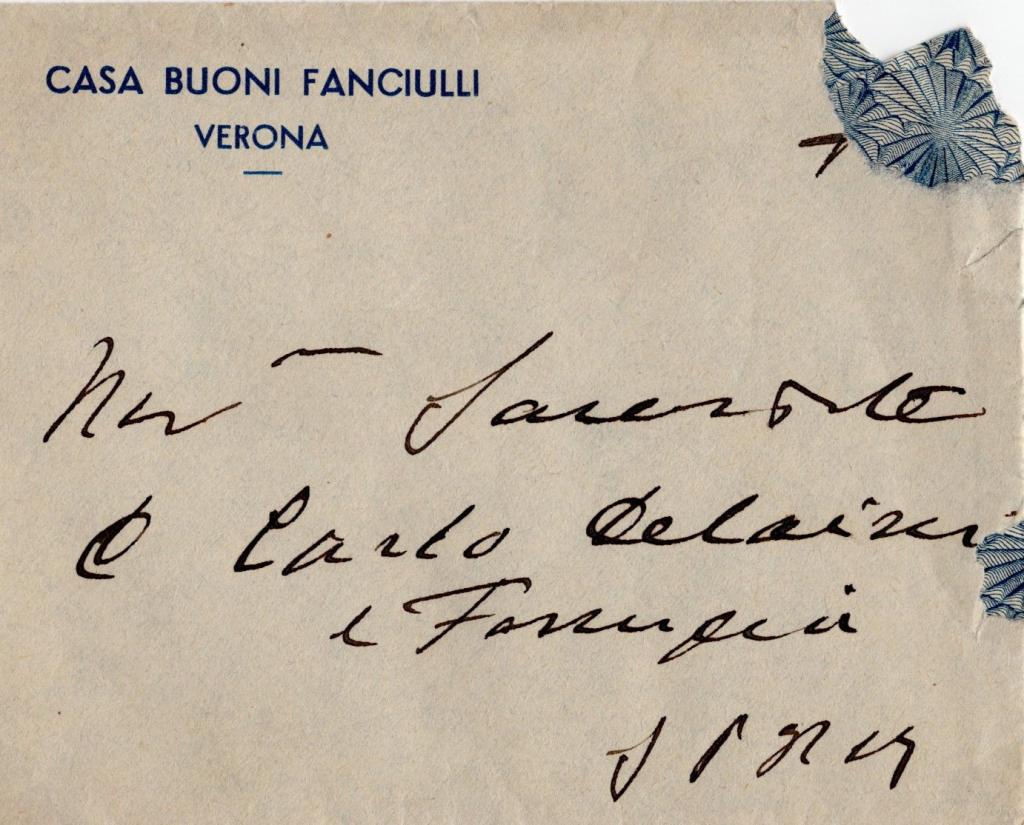 CASA BUONI FANCIULLI
VERONA
Sacerdote
D Carlo Delaini
e Famiglia
S P M